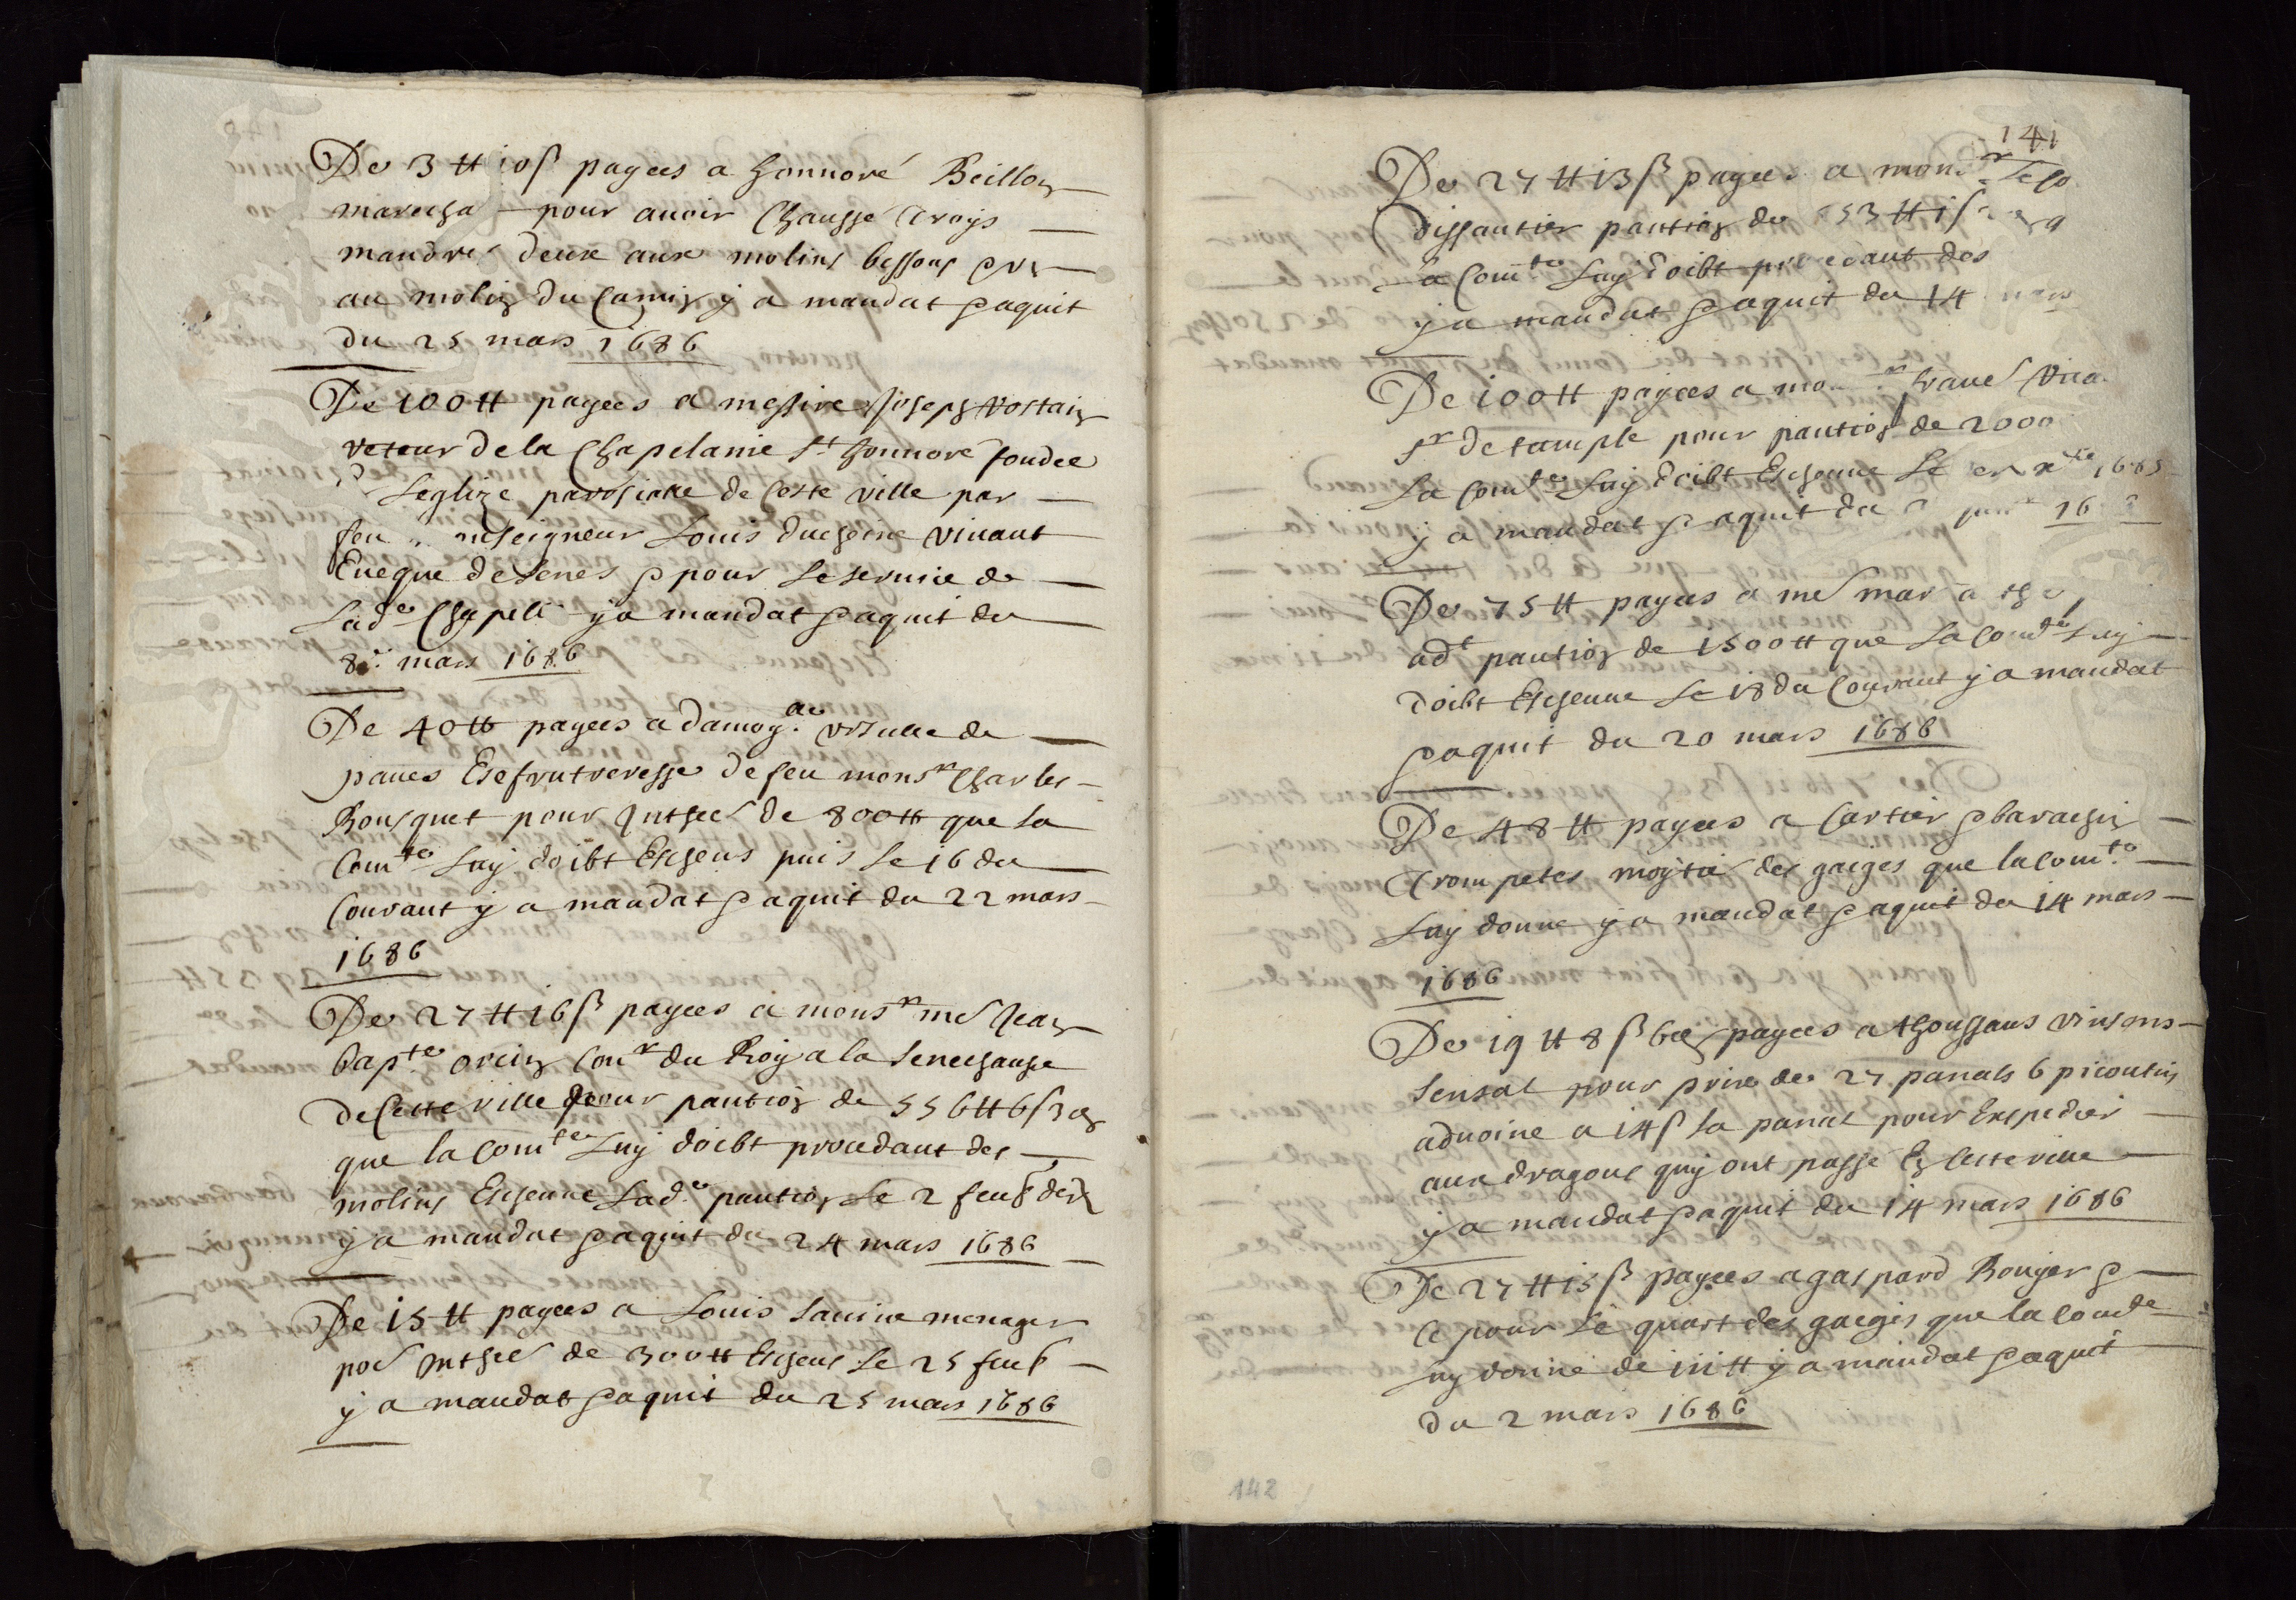 De 3 ₶ 10 ſ payees a honnoré Beillon
marecha pour auoir chaussé troys
mandres deux aux molins bessons & vn
au molin du camin y a mandat & aquit
du 25 mars 1686
De 100 ₶ payees a messire Joseph Rostain
retour de la chapelanie St honnore fondee
leglize parrsialle de ceste ville par
feu nseigneur Louis duchaine viuant
Eueque de senes & pour le seruice de
lade chapelle y a mandat & aquit du
8 mars 1686
De 40 ₶ payees a damoylle vrsulle de
panes Esefrutreresse de feu monsr charles
Bousquet pour jnthes de 800 ₶ que la
comte luy doibt Escheus puis le 16 du
couvant y a mandat & aquit du 22 mars
1686
De 27 ₶ 16 ſ payees a monsr me Jean
bapte orcin conr du Roy a la senechausse
de ceste ville pour pantion de 556 ₶ 6 ſ 3 d
que la comte luy doibt proudant des
molins Escheue lade pantion le 2 feub der
y a mandat & aquit du 24 mars 1686
De 15 ₶ payees a Louis sauine menager
por jnthes de 300 ₶ Escheus le 25 feub
y a mandat & aquit du 25 mars 1686
141
De 27 ₶ 13 ſ payees a monsr le co
dissautier pantion de 553 ₶ 1 ſ
la comte luy doibt procedant des
y a mandat & aquit du 14 mars
De 100 ₶ payees a mo r graue vica
sr de tample pour pantion de 2000
la comte luy doibt Escheue le er xbre 1685
y a mandat & aquit du 16
De 75 ₶ payees a me mar
adt pantion de 1500 ₶ que la comte luy
doibt Escheue le 18 du couvant y a mandat
& aquit du 20 mars 1686
De 48 ₶ payees a cartier & barachin
trompetes moytie des gaiges que la comte
luy donne y a mandat & aquit du 14 mars
1686
De 19 ₶ 8 ſ 6 d payees a thoussans vinsens
sensal pour prix de 27 panals 6 picoutins
aduoine a 14 ſ la panal pour Expedier
aux dragons quy ont passé En ceste ville
y a mandat & aquit du 14 mars 1686
De 27 ₶ 15 ſ payees a gaspard Rougier &
c pour le quart des gaeges que la comte
luy donne de 111 ₶ y a mandat & aquit
du 2 mars 1686
142